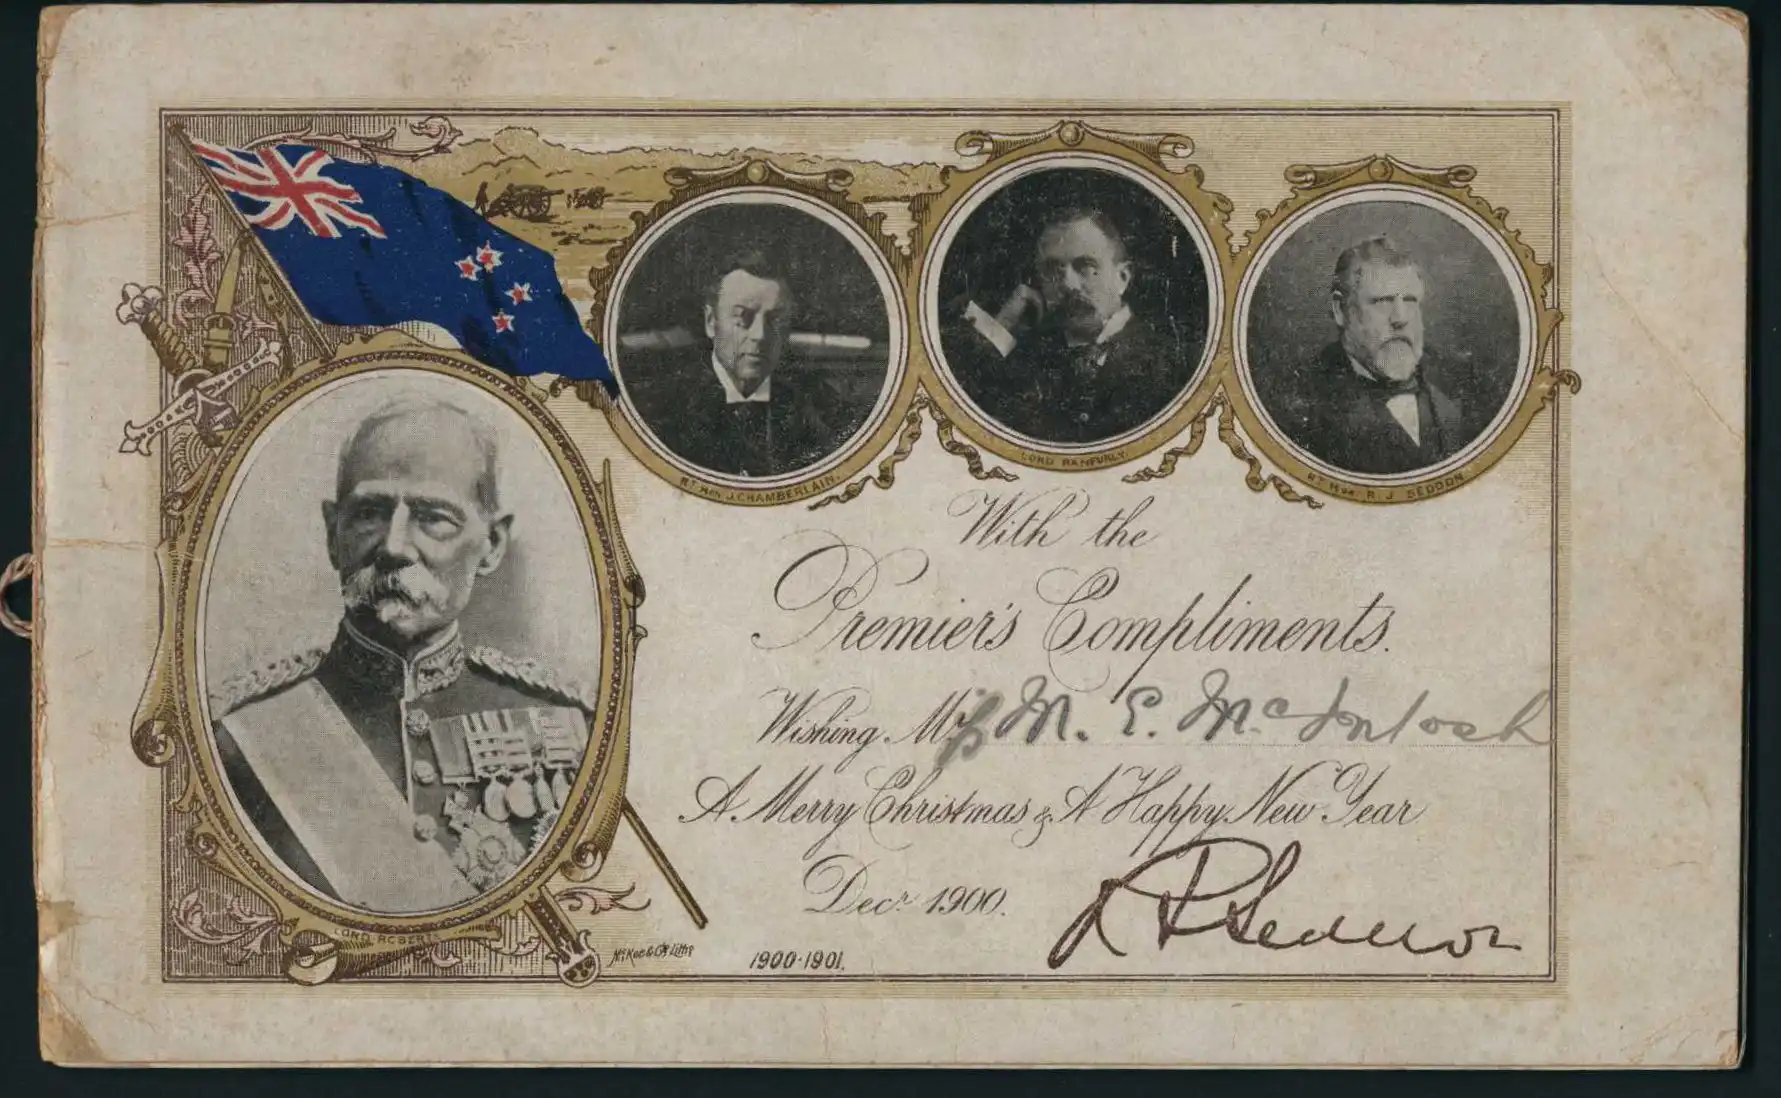 Rt Hon J. CHAMBERLAIN.
LORD RANFURLY.
Rt Hon. R. J. SEDDON.
With the
Premier's Compliments.
Wishing Mrs M. E. McIntosh
A Merry Christmas & A Happy New Year
Decr 1900.
R J Seddon
LORD ROBERTS
McKee & Co Litho
1900-1901.